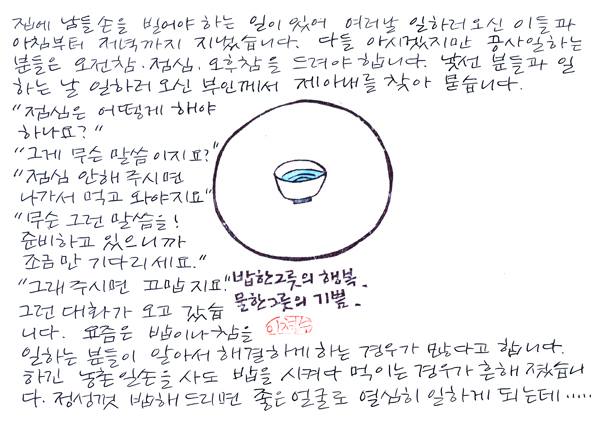 집에 남들 손을 빌어야 하는 일이 있어 여러날 일하러 오신 이들과
아침부터 저녁까지 지냈습니다. 다들 아시겠지만 공사일하는
분들은 오전참·점심·오후참을 드려야 합니다. 낯선 분들과 일
하는 날 일하러 오신 부인께서 제아내를 찾아 묻습니다.
"점심은 어떻게 해야
하나요?"
"그게 무슨 말씀이지요?"
"점심 안해 주시면
나가서 먹고 와야지요"
"무슨 그런 말씀을!
준비하고 있으니까
조금만 기다리세요."
"그래 주시면 고맙지요"
그런 대화가 오고 갔습
니다. 요즘은 밥이나 참을
일하는 분들이 알아서 해결하게 하는 경우가 많다고 합니다.
하긴 농촌일손을 사도 밥을 시켜다 먹이는 경우가 흔해 졌습니
다. 정성껏 밥해 드리면 좋은 얼굴로 열심히 일하게 되는데.....
밥한그릇의 행복.
물한그릇의 기쁨.